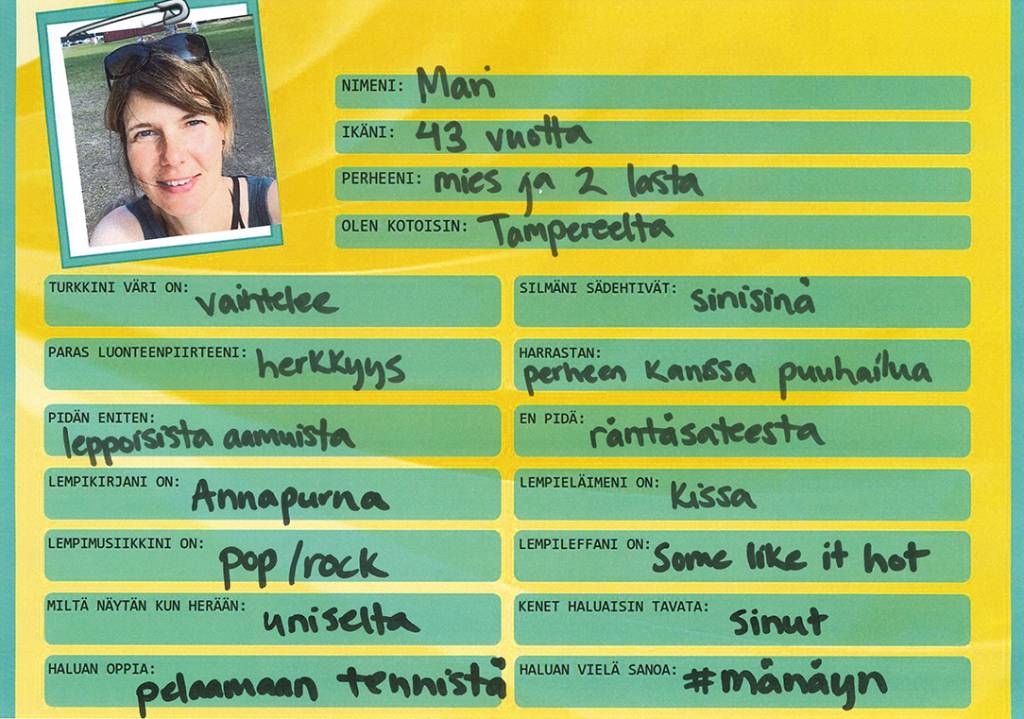 NIMENI: Mari
IKÄNI: 43 vuotta
PERHEENI: mies ja 2 lasta
OLEN KOTOISIN: Tampereelta
TURKKINI VÄRI ON: vaihtelee
SILMÄNI SÄDEHTIVÄT: sinisinä
PARAS LUONTEENPIIRTEENI: herkkyys
HARRASTAN:
perheen kanssa puuhailua
PIDÄN ENITEN:
leppoisista aamuista
EN PIDÄ: räntäsateesta
LEMPIKIRJANI ON: Annapurna
LEMPIELÄIMENI ON: Kissa
LEMPIMUSIIKKINI ON: pop/rock
LEMPILEFFANI ON: Some like it hot
MILTÄ NÄYTÄN KUN HERÄÄN: uniselta
KENET HALUAISIN TAVATA: sinut
HALUAN OPPIA:
pelaamaan tennistä
HALUAN VIELÄ SANOA: #mänäyn